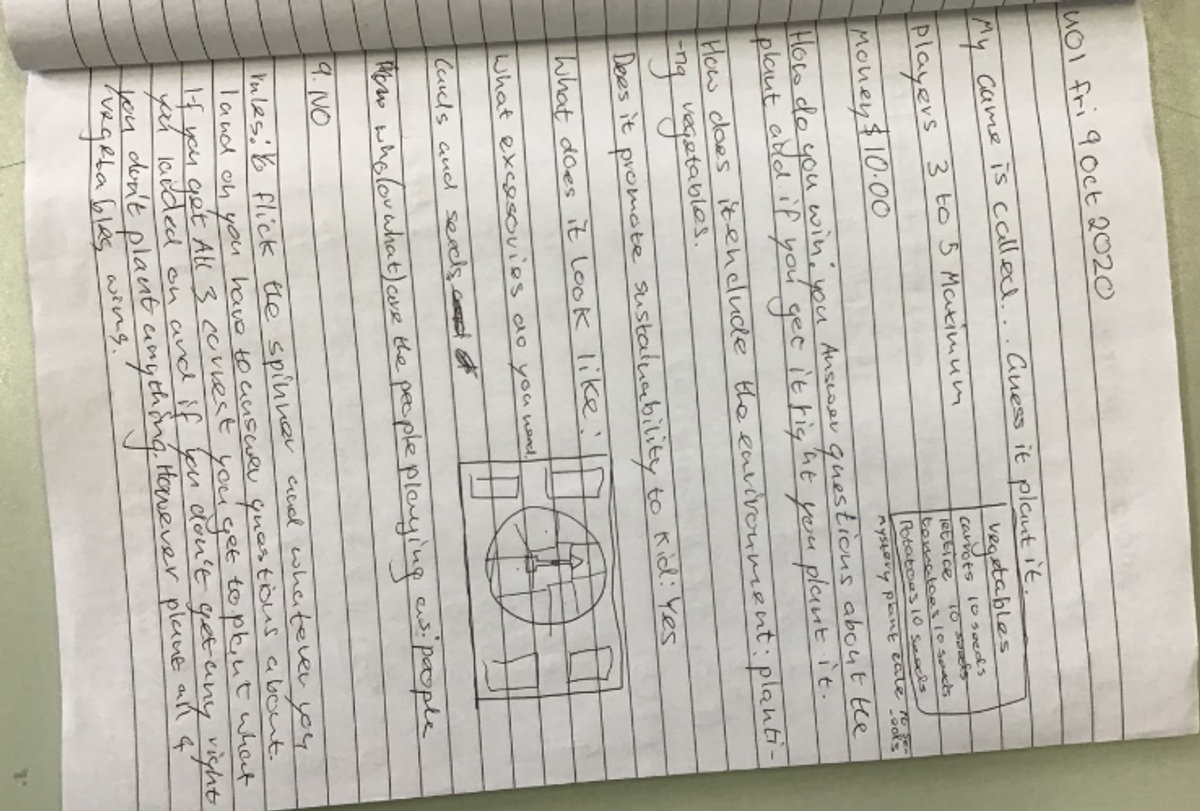 UOI fri 9 Oct 2020
My game is called... Guess it plant it.
Players 3 to 5 Maximum
Money $10.00
vegetables
carrots 10 seeds
lettice 10 seeds
tomatoes 10 seeds
Potatoes 10 seeds
mystery plant cale 10 se-
-eds
How do you win: you Answer questions about the
plant add if you get it right you plant it.
How does it enclude the environment: planti-
-ng vegetables.
Does it promote sustainability to kid: Yes
What does it look like:
What excesories do you need:
Cards and seeds
who(or what) are the people playing as: people
9. NO
rules: to flick the spinner and whatever you
land on you have to answer questions about.
If you get All 3 correct you get to plant what
you landed on and if you don't get any right
you don't plant anything. However plant all 4
vegetables, wins.